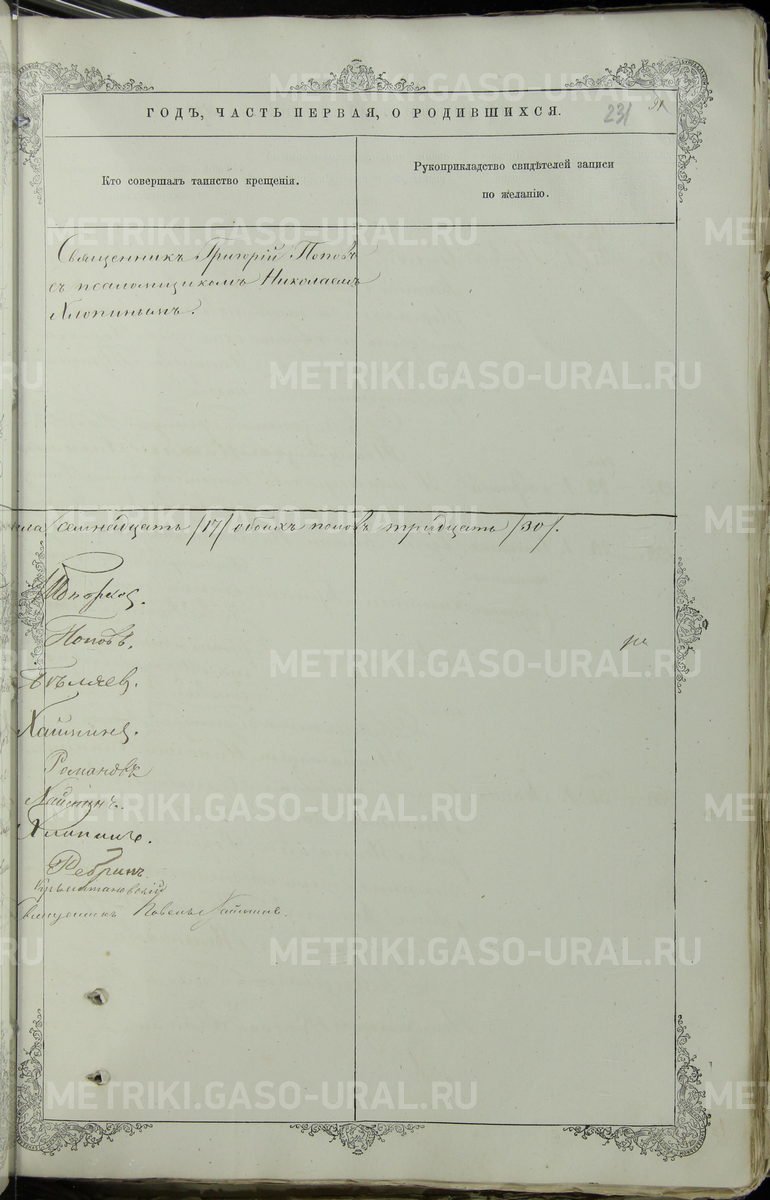 ГОДЪ, ЧАСТЬ ПЕРВАЯ, О РОДИВШИХСЯ.
231
91
Кто совершалъ таинство крещенія.
Рукоприкладство свидѣтелей записи
по желанію.
Священникъ Григорій Поповъ
съ псаломщикомъ Николаемъ
Хлопинымъ.
семнадцать /17/ обоихъ половъ тридцать /30/.
Поповъ.
Бѣляев.
Романовъ
Хлопинъ.
Ребринъ
METRIKI.GASO-URAL.RU